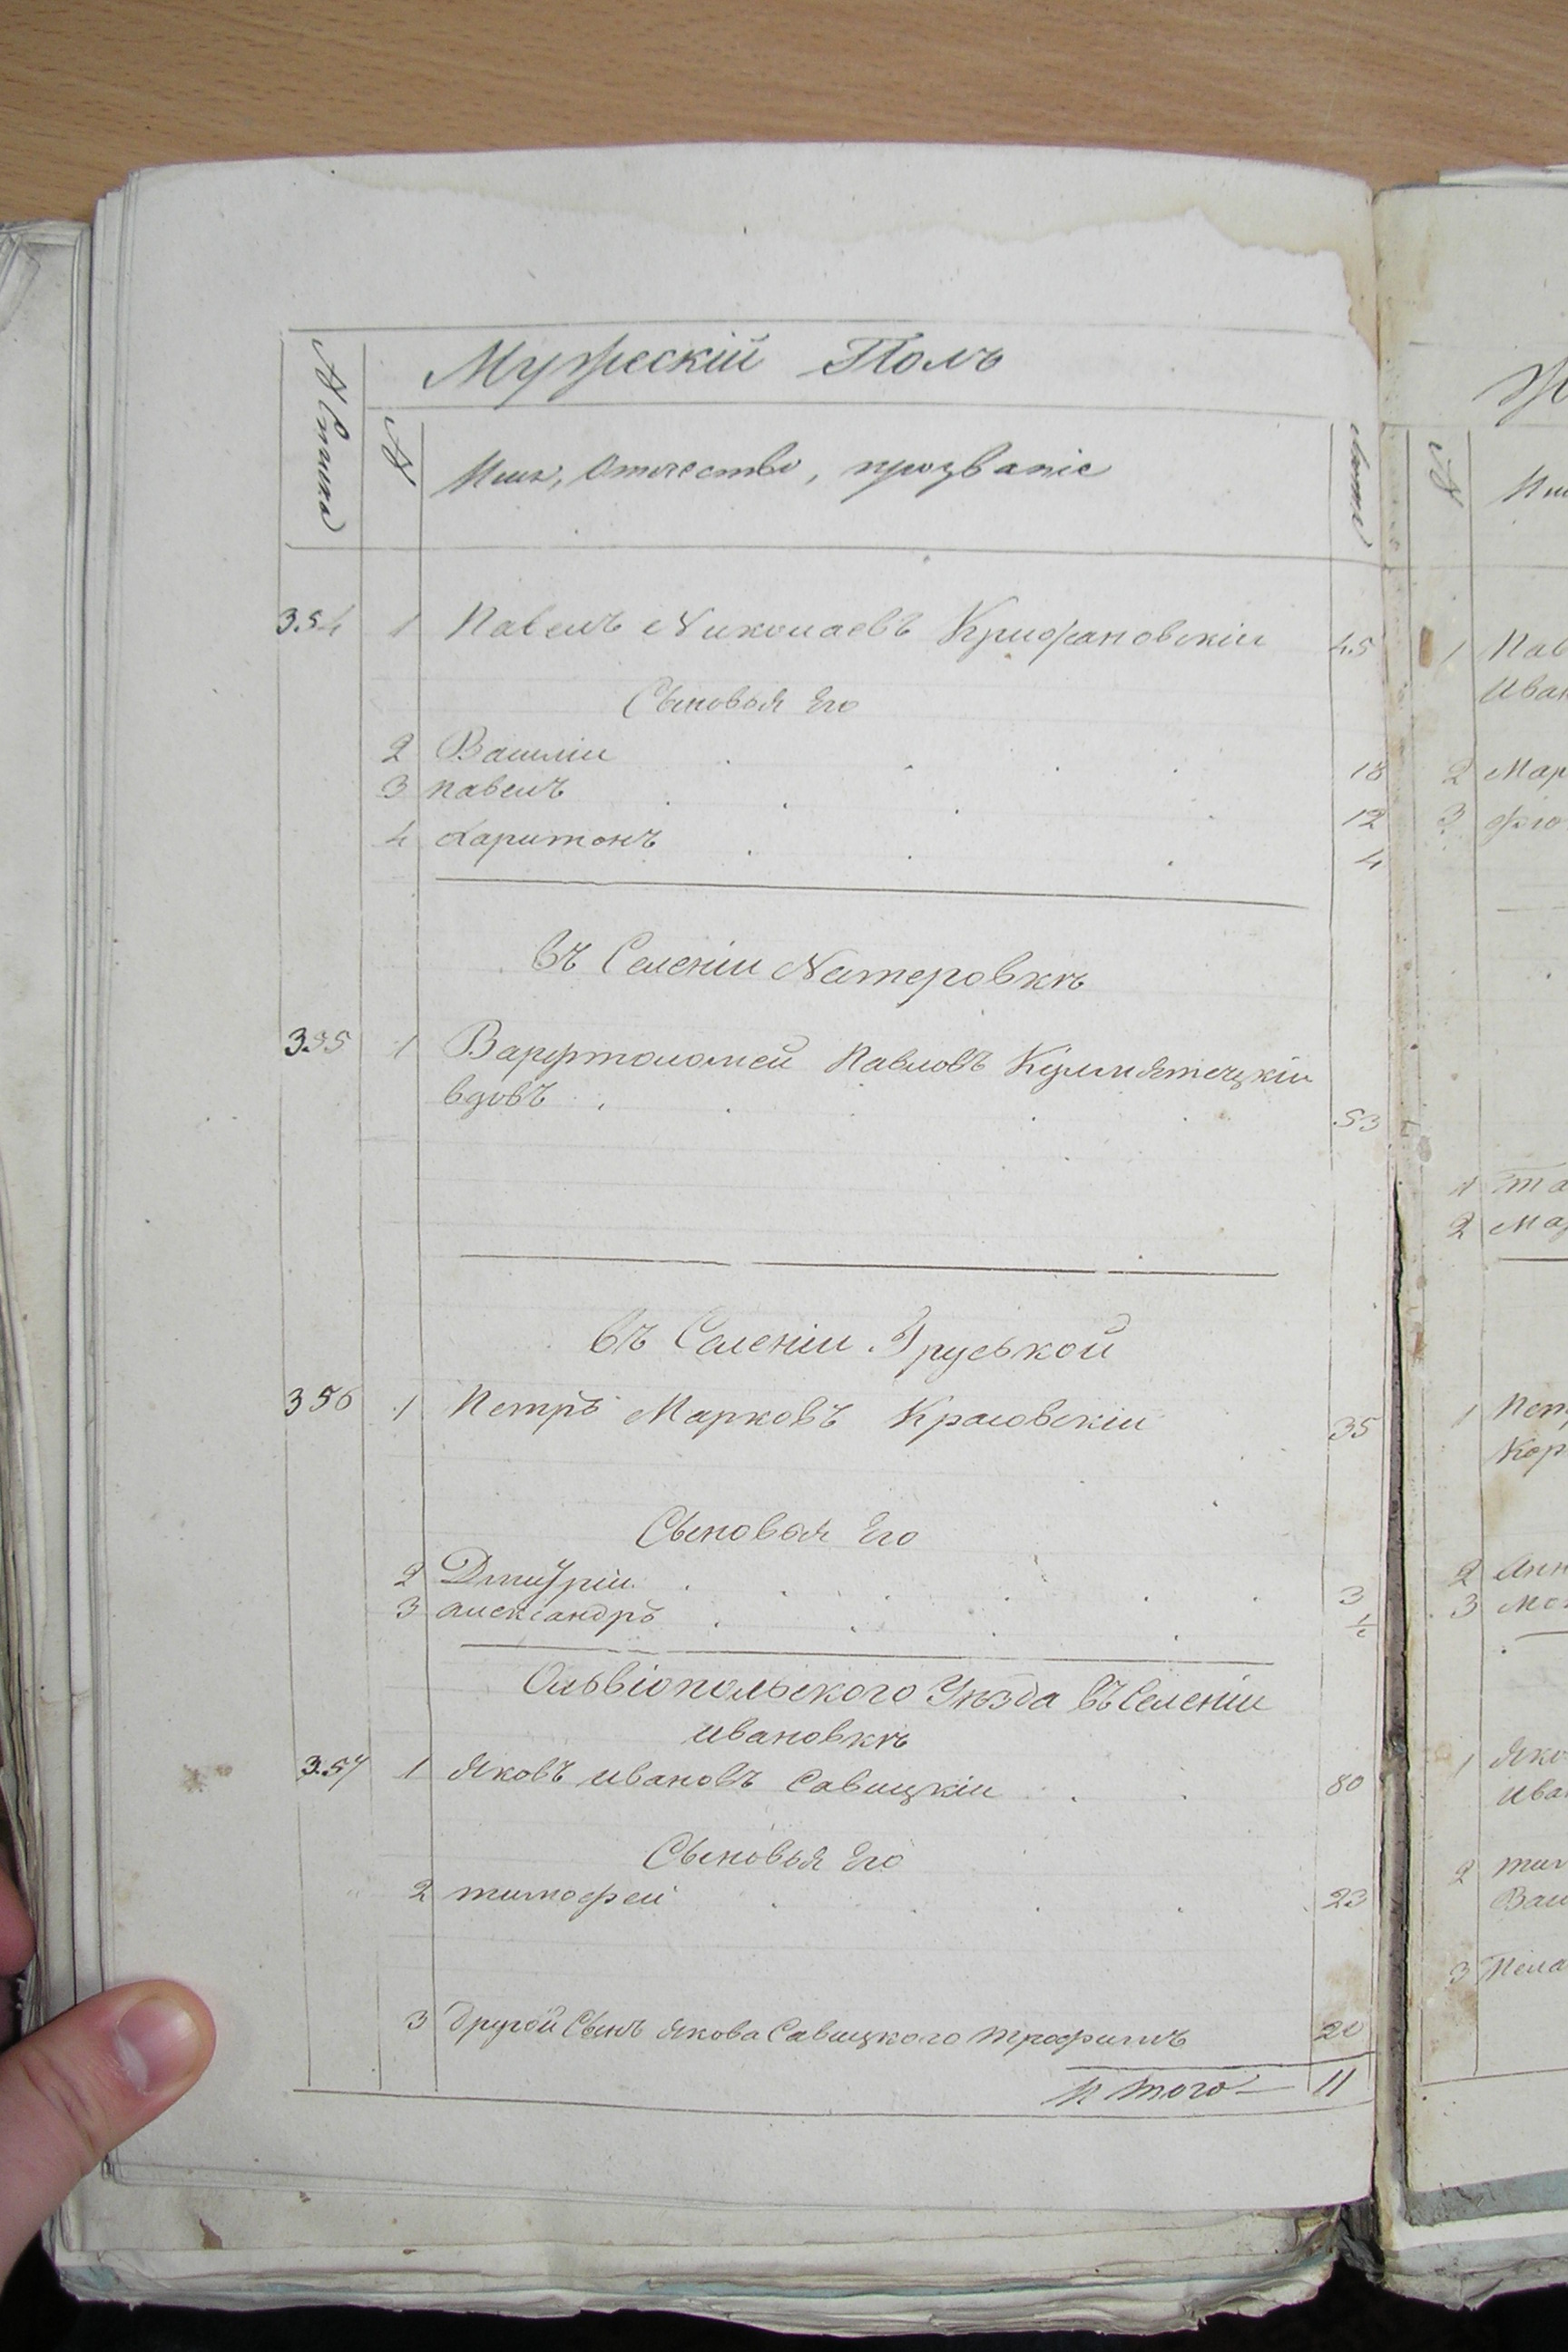 Мужескій Полъ
№ Станка
№
Имя, Отечество, прозваніе
Лѣта
354 1 Павелъ Николаевъ Крижановскіи 45
Сыновья Его
2 Василіи 18
3 павелъ 12
4 Харитонъ 4
въ Селеніи Нестеровкѣ
355 1 Варфтоломей Павловъ
вдовъ 53
въ Селеніи Груськой
356 1 Петръ Марковъ Красовскіи 35
Сыновья Его
2 Дмитріи 3
3 александръ ½
Ольвіопольского Уѣзда въ Селеніи
ивановкѣ
357 1 Яковъ ивановъ Савицкіи 80
Сыновья Его
2 тимофеи 23
3 другой Сынъ якова Савицкого трофимъ 20
Итого 11
№
1 Пав
Иван
2 Мар
3
1 та
2 мар
1 Пет
Кор
2 Анн
3
1 Яко
Ива
2 тим
Васи
3 Пела